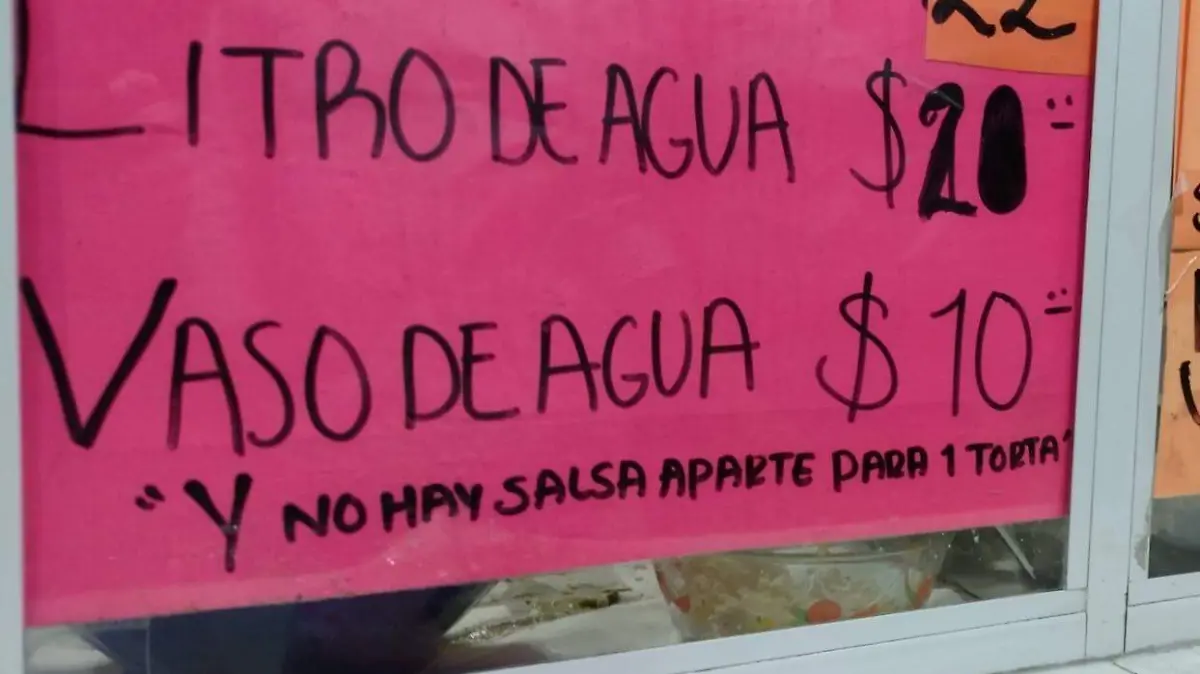 22
LITRO DE AGUA $20
VASO DE AGUA $10
"Y NO HAY SALSA APARTE PARA 1 TORTA"